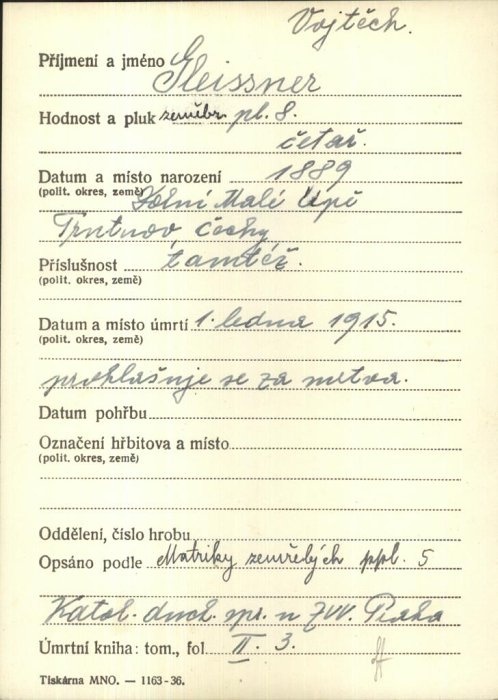 Vojtěch.
Příjmení a jméno Gleissner
Hodnost a pluk zeměbr. pl. 8.
četař.
Datum a místo narození 1889
(polit. okres, země) Dolní Malé Úpě
Trutnov Čechy
Příslušnost tamtéž.
(polit. okres, země)
Datum a místo úmrtí 1. ledna 1915.
(polit. okres, země)
prohlašuje se za mrtva.
Datum pohřbu
Označení hřbitova a místo
(polit. okres, země)
Oddělení, číslo hrobu
Opsáno podle Matriky zemřelých ppl. 5
Katol. duch. spr. u ZVV. Praha
Úmrtní kniha: tom., fol. II. 3.
Tiskárna MNO. — 1163-36.